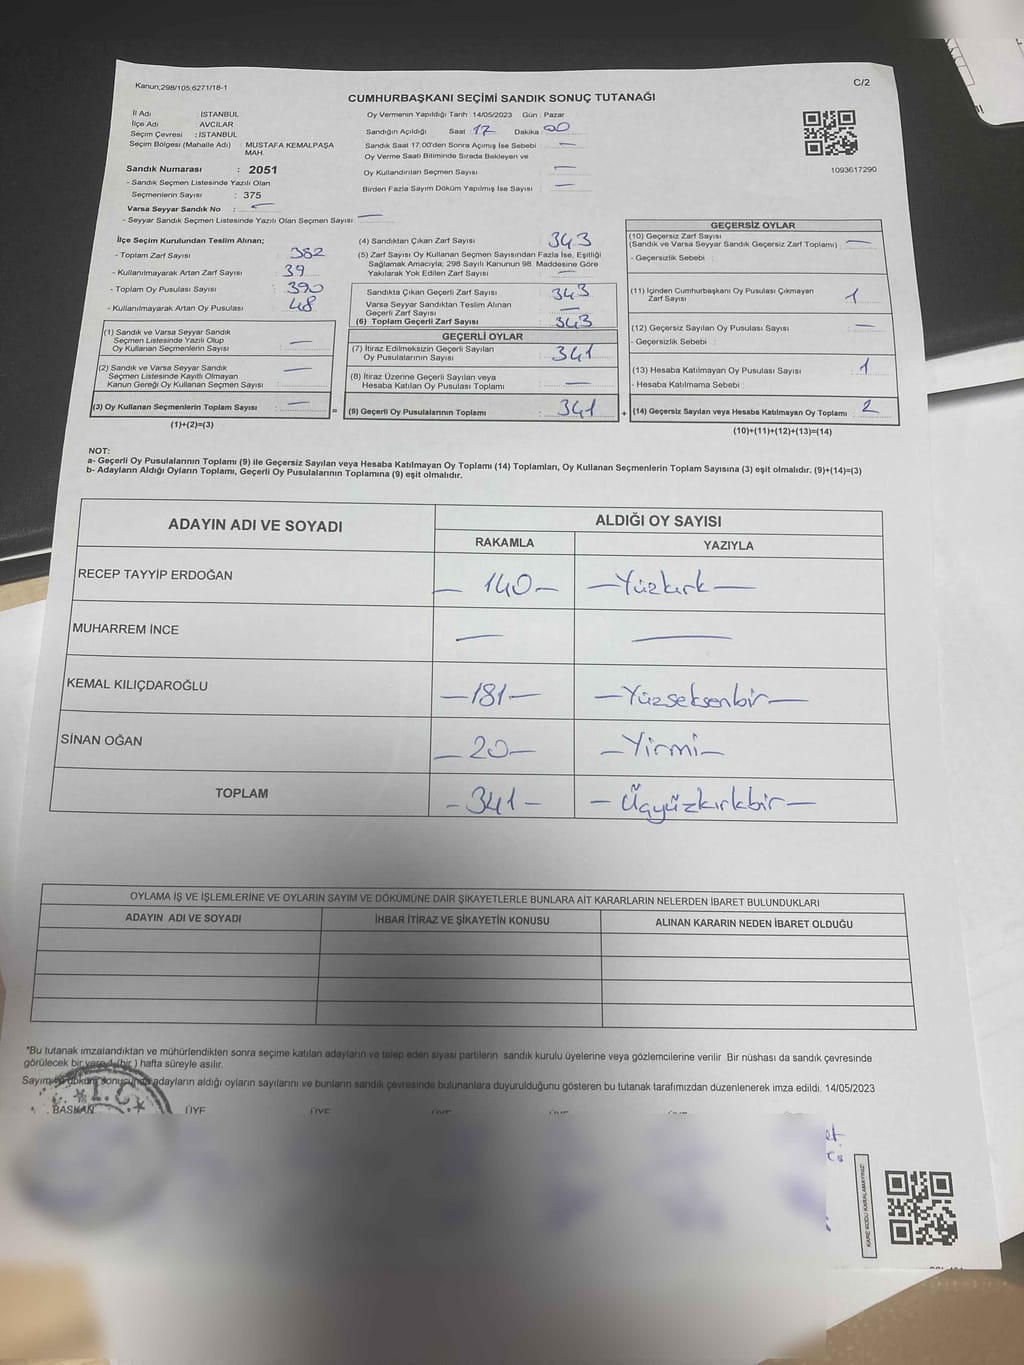 Kanun;298/105;6271/18-1
C/2
CUMHURBAŞKANI SEÇİMİ SANDIK SONUÇ TUTANAĞI
İl Adı : İSTANBUL
İlçe Adı : AVCILAR
Seçim Çevresi : İSTANBUL
Seçim Bölgesi (Mahalle Adı) : MUSTAFA KEMALPAŞA MAH.
Sandık Numarası : 2051
- Sandık Seçmen Listesinde Yazılı Olan
Seçmenlerin Sayısı : 375
Varsa Seyyar Sandık No : —
- Seyyar Sandık Seçmen Listesinde Yazılı Olan Seçmen Sayısı : —
Oy Vermenin Yapıldığı Tarih : 14/05/2023 Gün : Pazar
Sandığın Açıldığı Saat 17 Dakika 00
Sandık Saat 17:00'den Sonra Açımış İse Sebebi : —
Oy Verme Saati Bitiminde Sırada Bekleyen ve
Oy Kullandırılan Seçmen Sayısı : —
Birden Fazla Sayım Döküm Yapılmış İse Sayısı : —
1093617290
İlçe Seçim Kurulundan Teslim Alınan;
- Toplam Zarf Sayısı : 382
- Kullanılmayarak Artan Zarf Sayısı : 39
- Toplam Oy Pusulası Sayısı : 390
- Kullanılmayarak Artan Oy Pusulası : 48
(1) Sandık ve Varsa Seyyar Sandık
Seçmen Listesinde Yazılı Olup
Oy Kullanan Seçmenlerin Sayısı : —
(2) Sandık ve Varsa Seyyar Sandık
Seçmen Listesinde Kayıtlı Olmayan
Kanun Gereği Oy Kullanan Seçmen Sayısı : —
(3) Oy Kullanan Seçmenlerin Toplam Sayısı : —
(1)+(2)=(3)
(4) Sandıktan Çıkan Zarf Sayısı : 343
(5) Zarf Sayısı Oy Kullanan Seçmen Sayısından Fazla İse, Eşitliği
Sağlamak Amacıyla; 298 Sayılı Kanunun 98. Maddesine Göre
Yakılarak Yok Edilen Zarf Sayısı : —
Sandıkta Çıkan Geçerli Zarf Sayısı : 343
Varsa Seyyar Sandıktan Teslim Alınan
Geçerli Zarf Sayısı : —
(6) Toplam Geçerli Zarf Sayısı : 343
GEÇERLİ OYLAR
(7) İtiraz Edilmeksizin Geçerli Sayılan
Oy Pusulalarının Sayısı : 341
(8) İtiraz Üzerine Geçerli Sayılan veya
Hesaba Katılan Oy Pusulası Toplamı : —
= (9) Geçerli Oy Pusulalarının Toplamı : 341
GEÇERSİZ OYLAR
(10) Geçersiz Zarf Sayısı
(Sandık ve Varsa Seyyar Sandık Geçersiz Zarf Toplamı) : —
- Geçersizlik Sebebi :
(11) İçinden Cumhurbaşkanı Oy Pusulası Çıkmayan
Zarf Sayısı : 1
(12) Geçersiz Sayılan Oy Pusulası Sayısı : —
- Geçersizlik Sebebi :
(13) Hesaba Katılmayan Oy Pusulası Sayısı : 1
- Hesaba Katılmama Sebebi :
+ (14) Geçersiz Sayılan veya Hesaba Katılmayan Oy Toplamı : 2
(10)+(11)+(12)+(13)=(14)
NOT:
a- Geçerli Oy Pusulalarının Toplamı (9) ile Geçersiz Sayılan veya Hesaba Katılmayan Oy Toplamı (14) Toplamları, Oy Kullanan Seçmenlerin Toplam Sayısına (3) eşit olmalıdır. (9)+(14)=(3)
b- Adayların Aldığı Oyların Toplamı, Geçerli Oy Pusulalarının Toplamına (9) eşit olmalıdır.
ADAYIN ADI VE SOYADI ALDIĞI OY SAYISI
RAKAMLA YAZIYLA
RECEP TAYYİP ERDOĞAN — 140 — — Yüzkırk —
MUHARREM İNCE — —
KEMAL KILIÇDAROĞLU — 181 — — Yüzseksenbir —
SİNAN OĞAN — 20 — — Yirmi —
TOPLAM - 341 - — Üçyüzkırkbir —
OYLAMA İŞ VE İŞLEMLERİNE VE OYLARIN SAYIM VE DÖKÜMÜNE DAİR ŞİKAYETLERLE BUNLARA AİT KARARLARIN NELERDEN İBARET BULUNDUKLARI
ADAYIN ADI VE SOYADI İHBAR İTİRAZ VE ŞİKAYETİN KONUSU ALINAN KARARIN NEDEN İBARET OLDUĞU
*Bu tutanak imzalandıktan ve mühürlendikten sonra seçime katılan adayların ve talep eden siyasi partilerin sandık kurulu üyelerine veya gözlemcilerine verilir. Bir nüshası da sandık çevresinde
görülecek bir yere 1 (bir) hafta süreyle asılır.
Sayım ve döküm sonucunda adayların aldığı oyların sayılarını ve bunların sandık çevresinde bulunanlara duyurulduğunu gösteren bu tutanak tarafımızdan düzenlenerek imza edildi. 14/05/2023
BAŞKAN ÜYE ÜYE
T.C.
KARE KODU KARALAMAYINIZ!